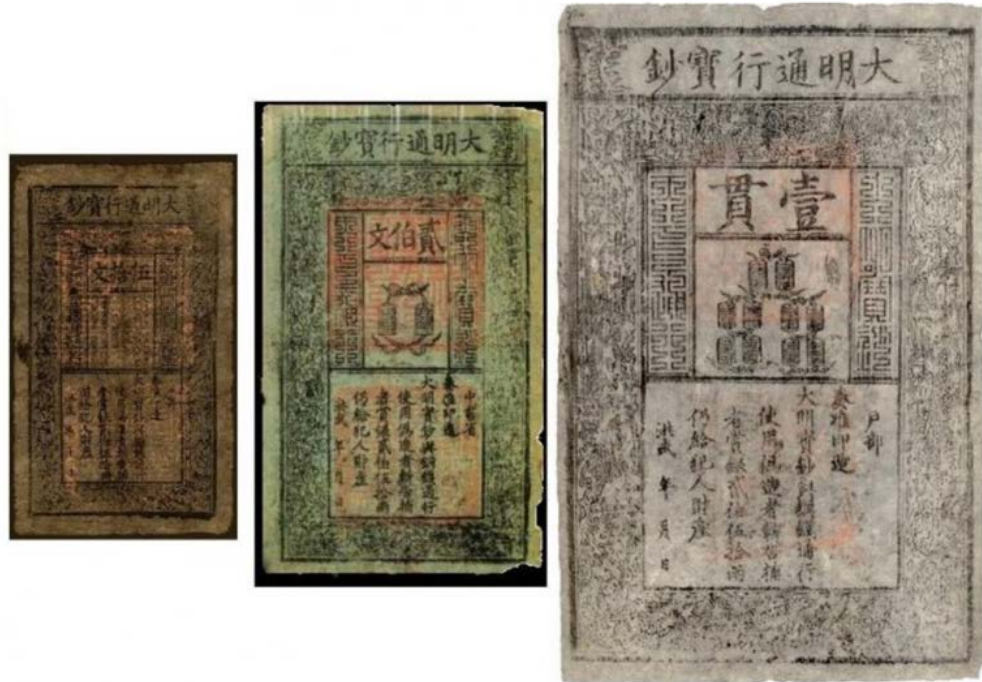 大明通行寶鈔
伍拾文
大明通行寶鈔
貳伯文
大明寶鈔
天下通行
中書省
奏准印造
大明寶鈔與銅錢通行
使用偽造者斬告捕
者賞銀貳伯伍拾兩
仍給犯人財產
洪武 年 月 日
大明通行寶鈔
壹貫
大明寶鈔
天下通行
戶部
奏准印造
大明寶鈔與銅錢通行
使用偽造者斬告捕
者賞銀貳伯伍拾兩
仍給犯人財產
洪武 年 月 日